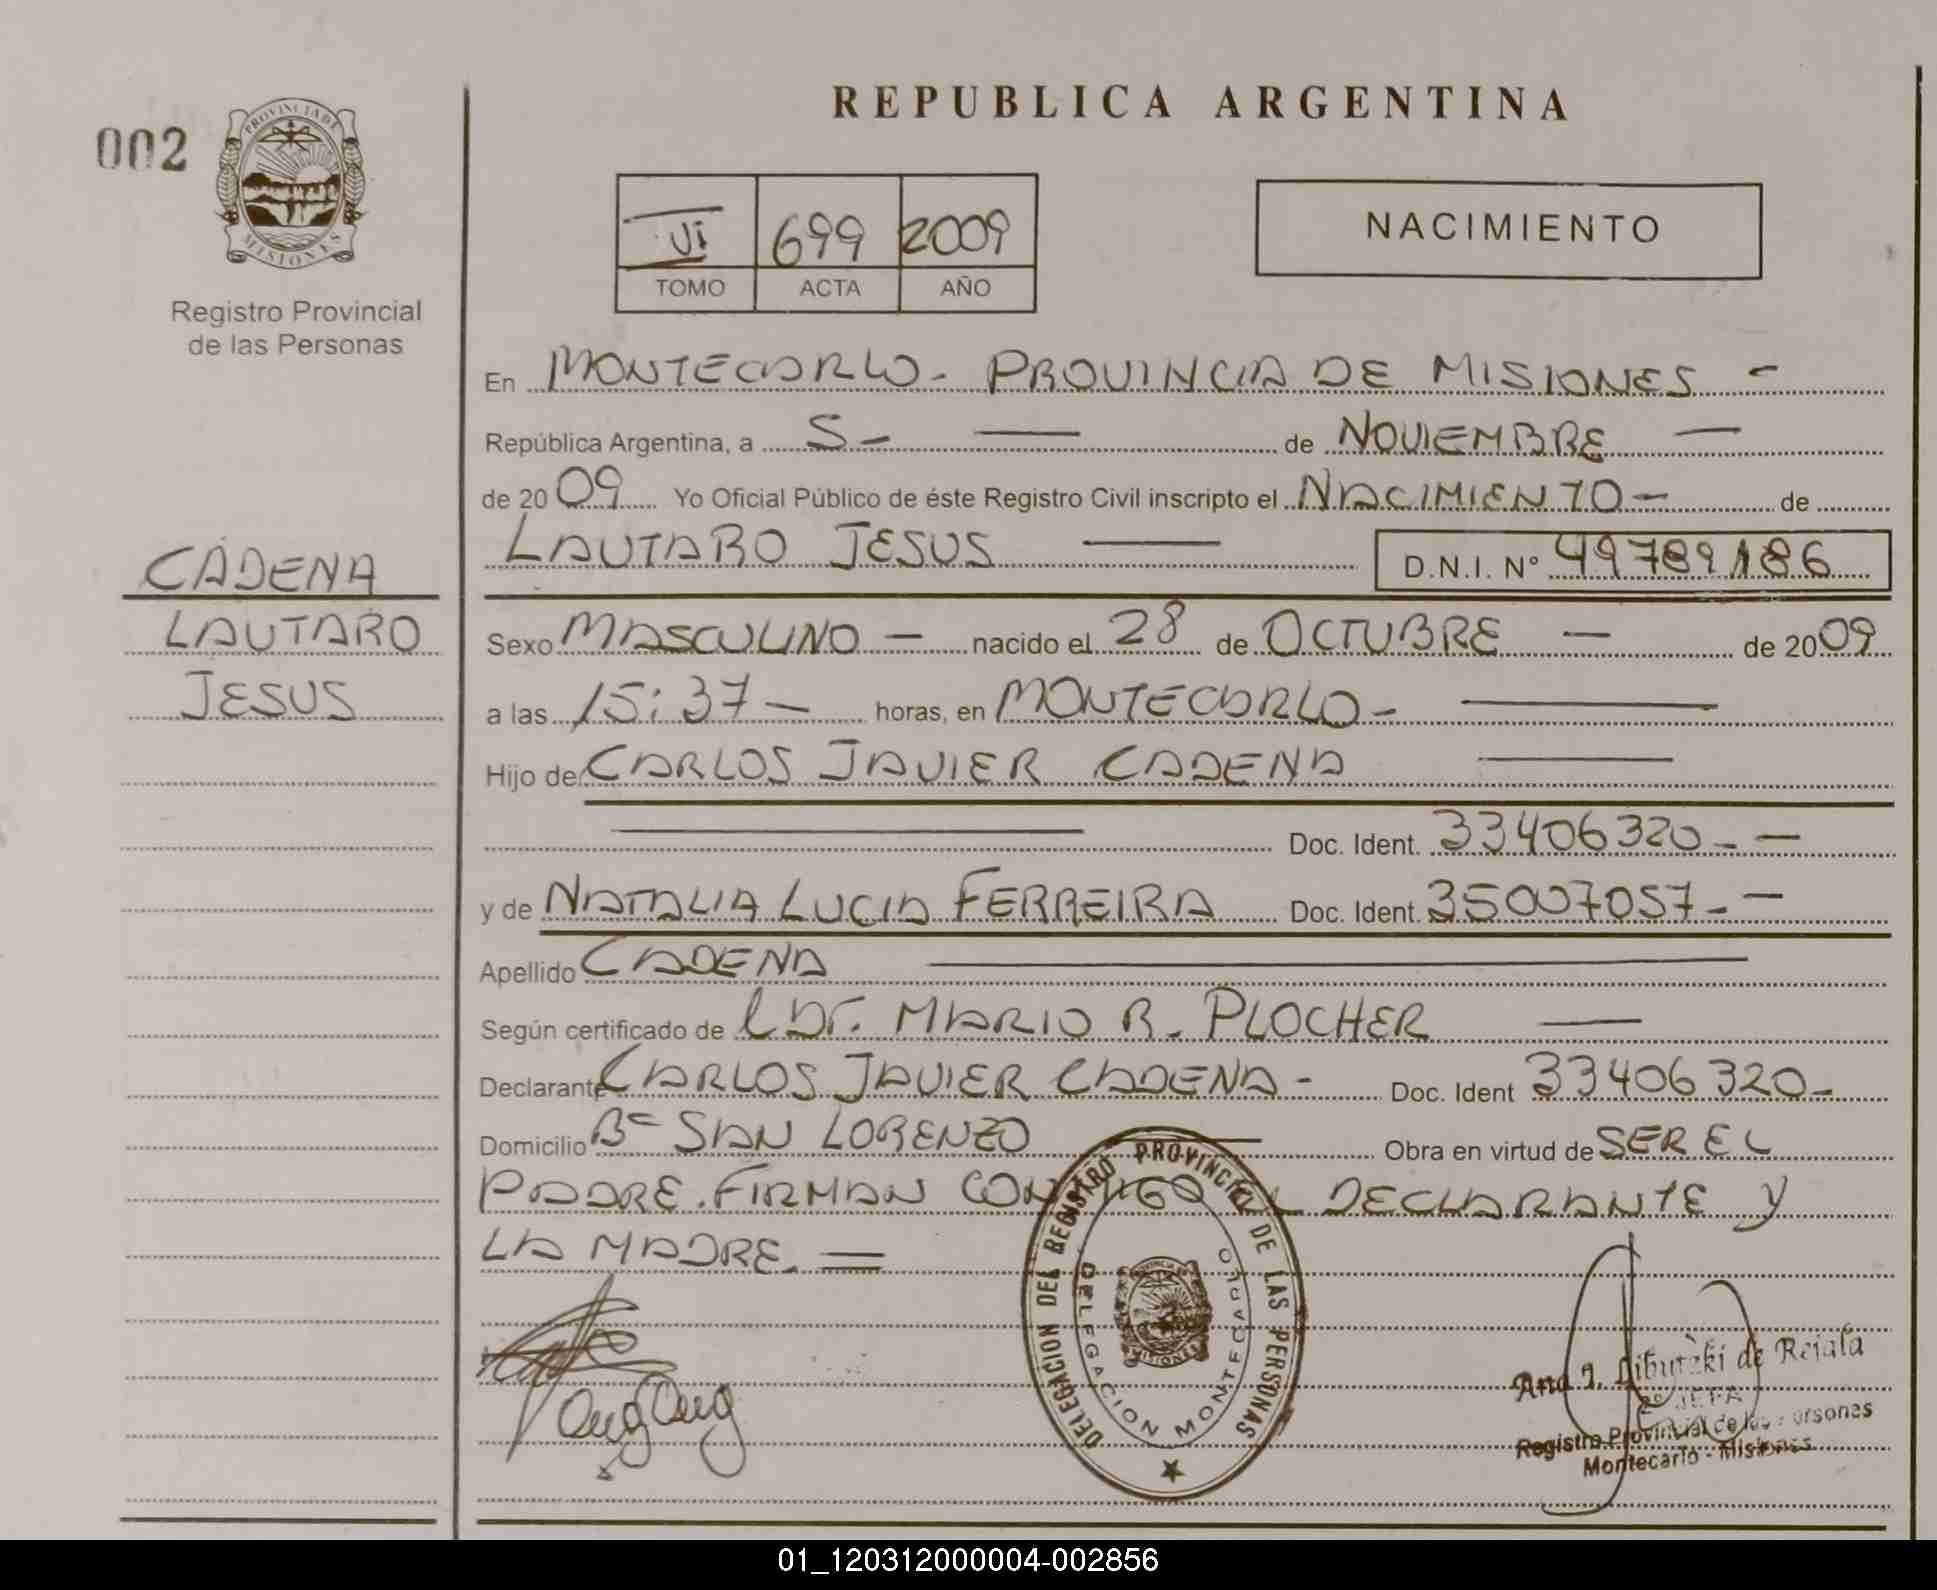 002
PROVINCIA DE
MISIONES
Registro Provincial
de las Personas
CADENA
LAUTARO
JESUS
REPUBLICA ARGENTINA
VI 699 2009
TOMO ACTA AÑO
NACIMIENTO
En MONTECARLO - PROVINCIA DE MISIONES -
República Argentina, a 5 - — de NOVIEMBRE —
de 2009 Yo Oficial Público de éste Registro Civil inscripto el NACIMIENTO - de
LAUTARO JESUS — D.N.I. Nº 49789186
Sexo MASCULINO — nacido el 28 de OCTUBRE — de 2009
a las 15:37 — horas, en MONTECARLO - —
Hijo de CARLOS JAVIER CADENA —
— Doc. Ident. 33406320 - —
y de NATALIA LUCIA FERREIRA Doc. Ident. 35007057 - —
Apellido CADENA —
Según certificado de MARIO R. PLOCHER —
Declarante CARLOS JAVIER CADENA - Doc. Ident 33406320 -
Domicilio Bº SAN LORENZO — Obra en virtud de SER EL
PADRE. FIRMAN CONMIGO EL DECLARANTE Y
LA MADRE. —
DELEGACION DEL REGISTRO PROVINCIAL DE LAS PERSONAS
DELEGACION MONTECARLO
MISIONES
Ana de
JEFA
Registro Provincial de las Personas
Montecarlo - Misiones
01_120312000004-002856